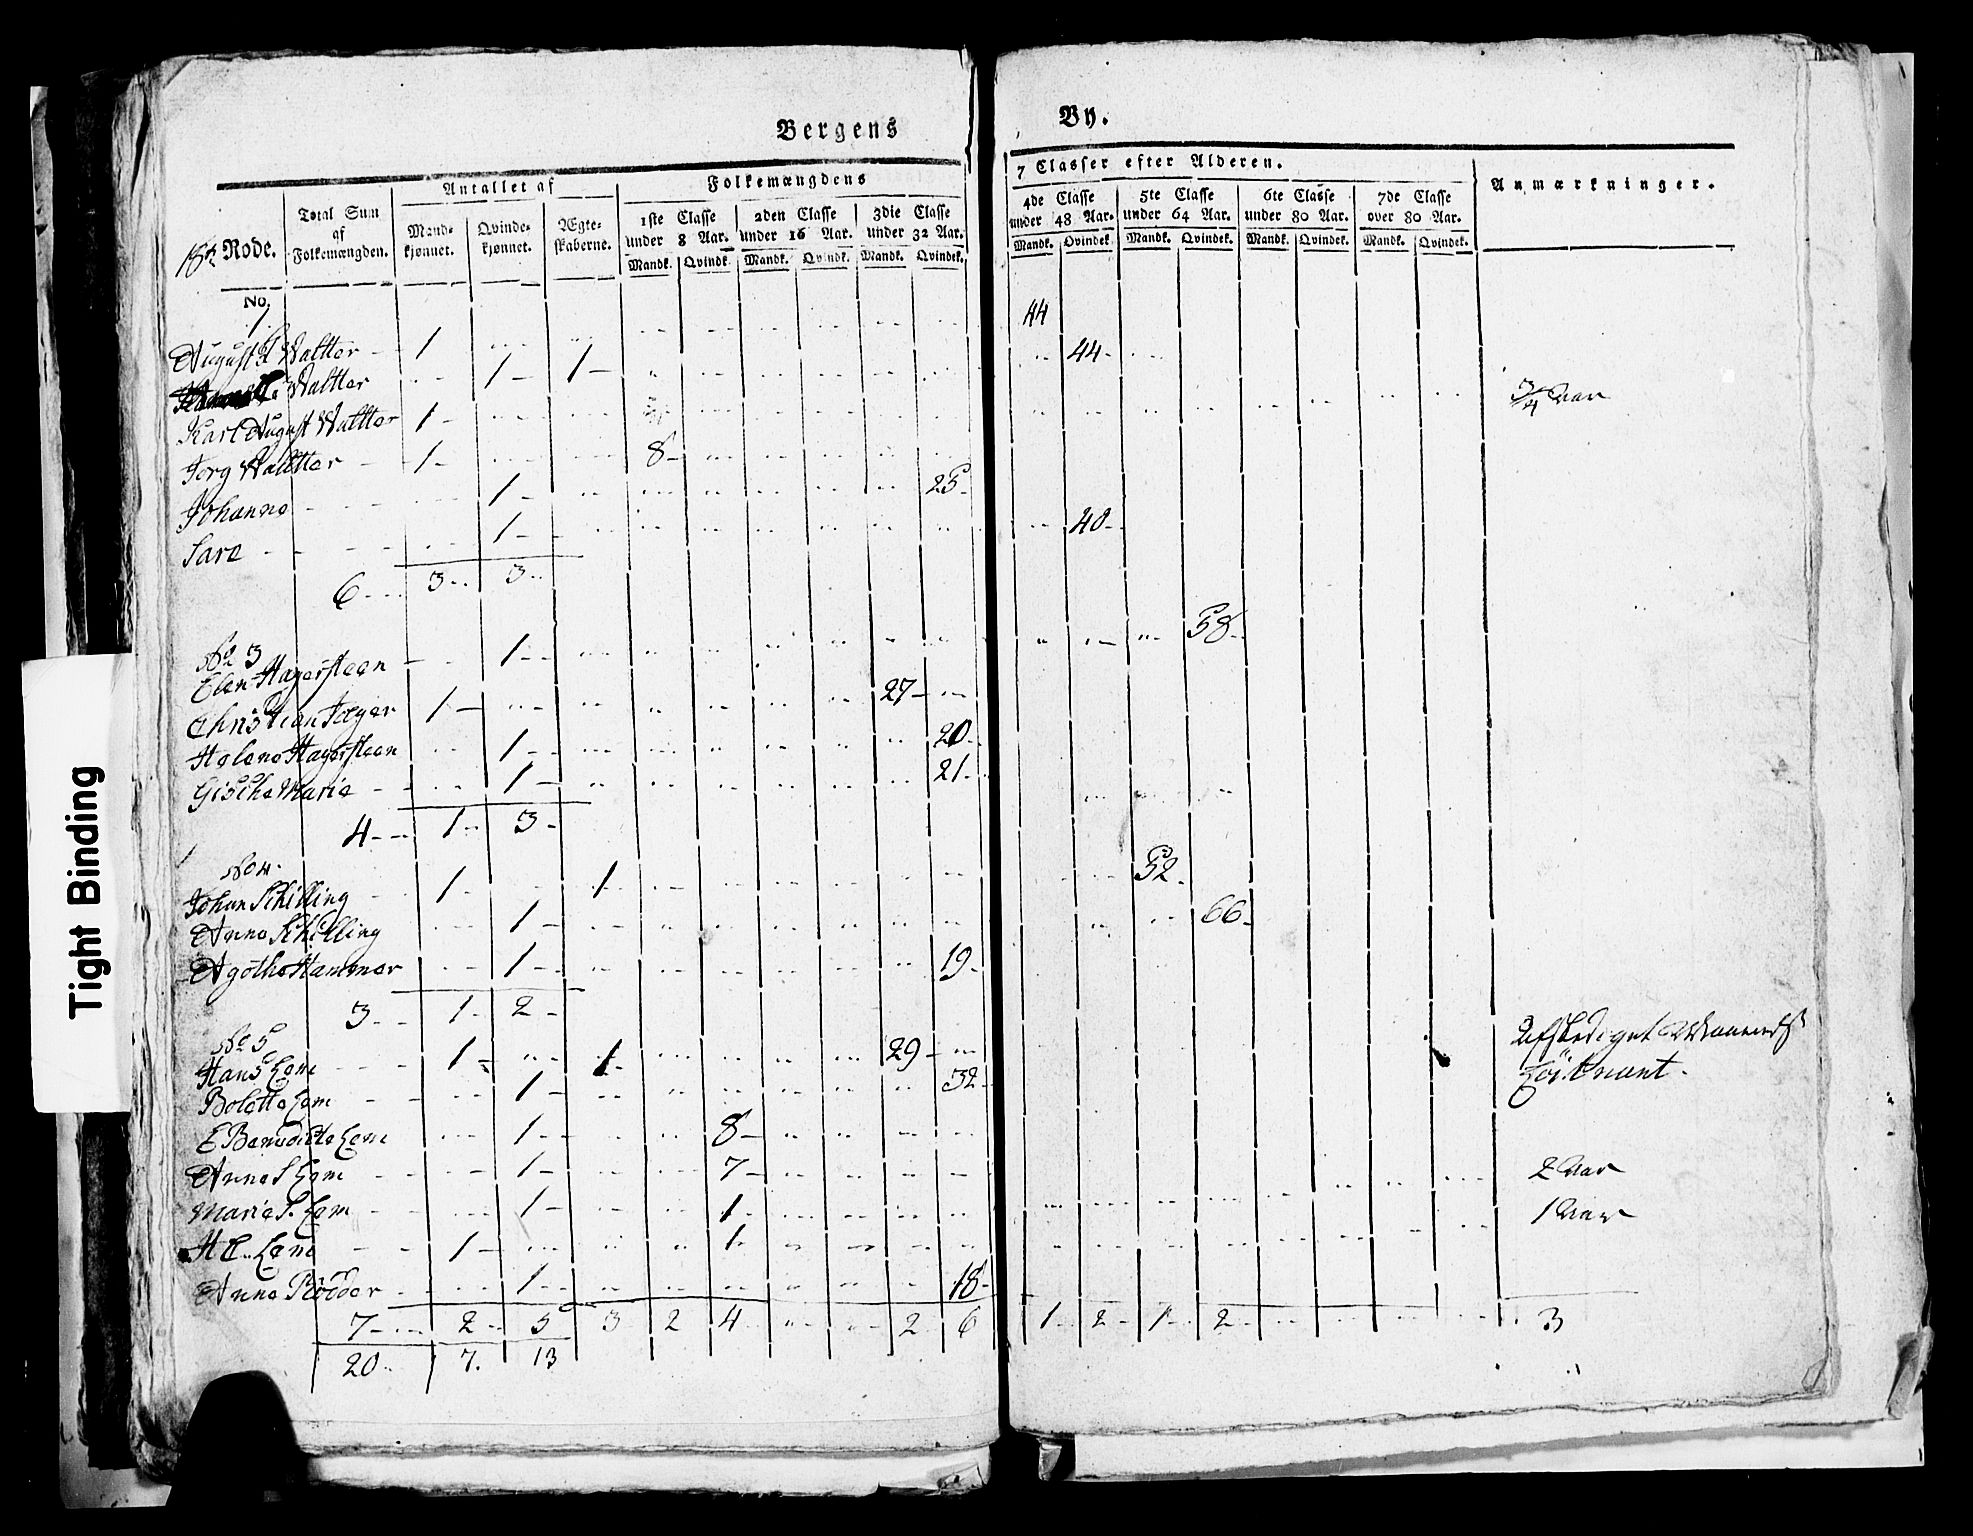 Bergens By.
18de Rode.
Total Sum af Folkemængden.
Antallet af
Mandkjønnet.
Qvindekjønnet.
Ægteskaberne.
Folkemængdens 7 Classer efter Alderen.
1ste Classe under 8 Aar.
2den Classe under 16 Aar.
3die Classe under 32 Aar.
4de Classe under 48 Aar.
5te Classe under 64 Aar.
6te Classe under 80 Aar.
7de Classe over 80 Aar.
Anmærkninger.
Mandk. Qvindk. Mandk. Qvindk. Mandk. Qvindek. Mandk. Qvindek. Mandk. Qvindek. Mandk. Qvindek. Mandk. Qvindek.
No. 1
August Waltter 1 44
Waltter 1 1 44
Karl August Waltter 1 3/4 Aar
Jørg Waltter 1 8
Johanne 1 25
Sara 1 40
6 3 3
No 3
Elen Hagersteen 1 58
Christian Jæger 1 27
Helene Hagersteen 1 20
Gische Marie 1 21
4 1 3
No 4
Johan Schilling 1 1 52
Anne Schilling 1 66
Agothe Hammer 1 19
3 1 2
No 5
Hans Lem 1 1 29 Afskediget
Bolette Lem 1 32 Löitnant
E Benedicte Lem 1 8
Anne S Lem 1 7
Marie S. Lem 1 1 2 Aar
H C. Lem 1 1 1 Aar
Anne Rödder 1 18
7 2 5 3 2 4 2 6 1 2 1 2 3
20 7. 13
Tight Binding